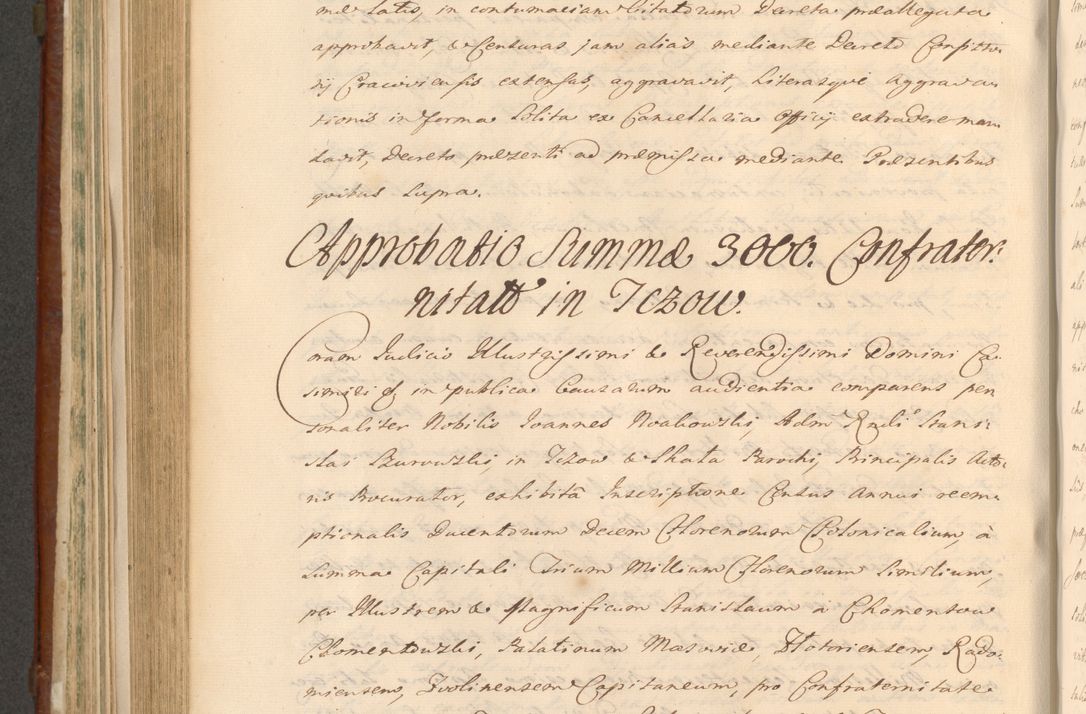 me Lato, in contumaciam Citatorum Decreta præallegata
approbavit, & Censuras jam alias mediante Decreto Consisto
rij Cracoviensis extensas, aggravavit, Literasque Aggrava
tionis in forma solita ex Cancellaria Officij extradere man
davit, Decreto præsenti ad præmissa mediante. Præsentibus
quibus supra.
Approbatio Summæ 3000. Confrater:
nitati in Iczow.
Coram Iudicio Illustrissimi & Reverendissimi Domini Ca
simiri & in publica Causarum audientia comparens per
sonaliter Nobilis Ioannes Noakowski, Adm Rndi Stani
slai Burowski, in Iczow & Skata Parochi, Principalis Acto
ris Procurator, exhibitâ Inscriptione Census Annui reem
ptionalis Ducentorum Decem Florenorum Polonicalium, à
Summa Capitali Trium Millium Florenorum similium,
per Illustrem & Magnificum Stanislaum à Chomentow
Chomentowski, Palatinum Masoviæ, Rado
miensem, Capitaneum, pro Confraternitate